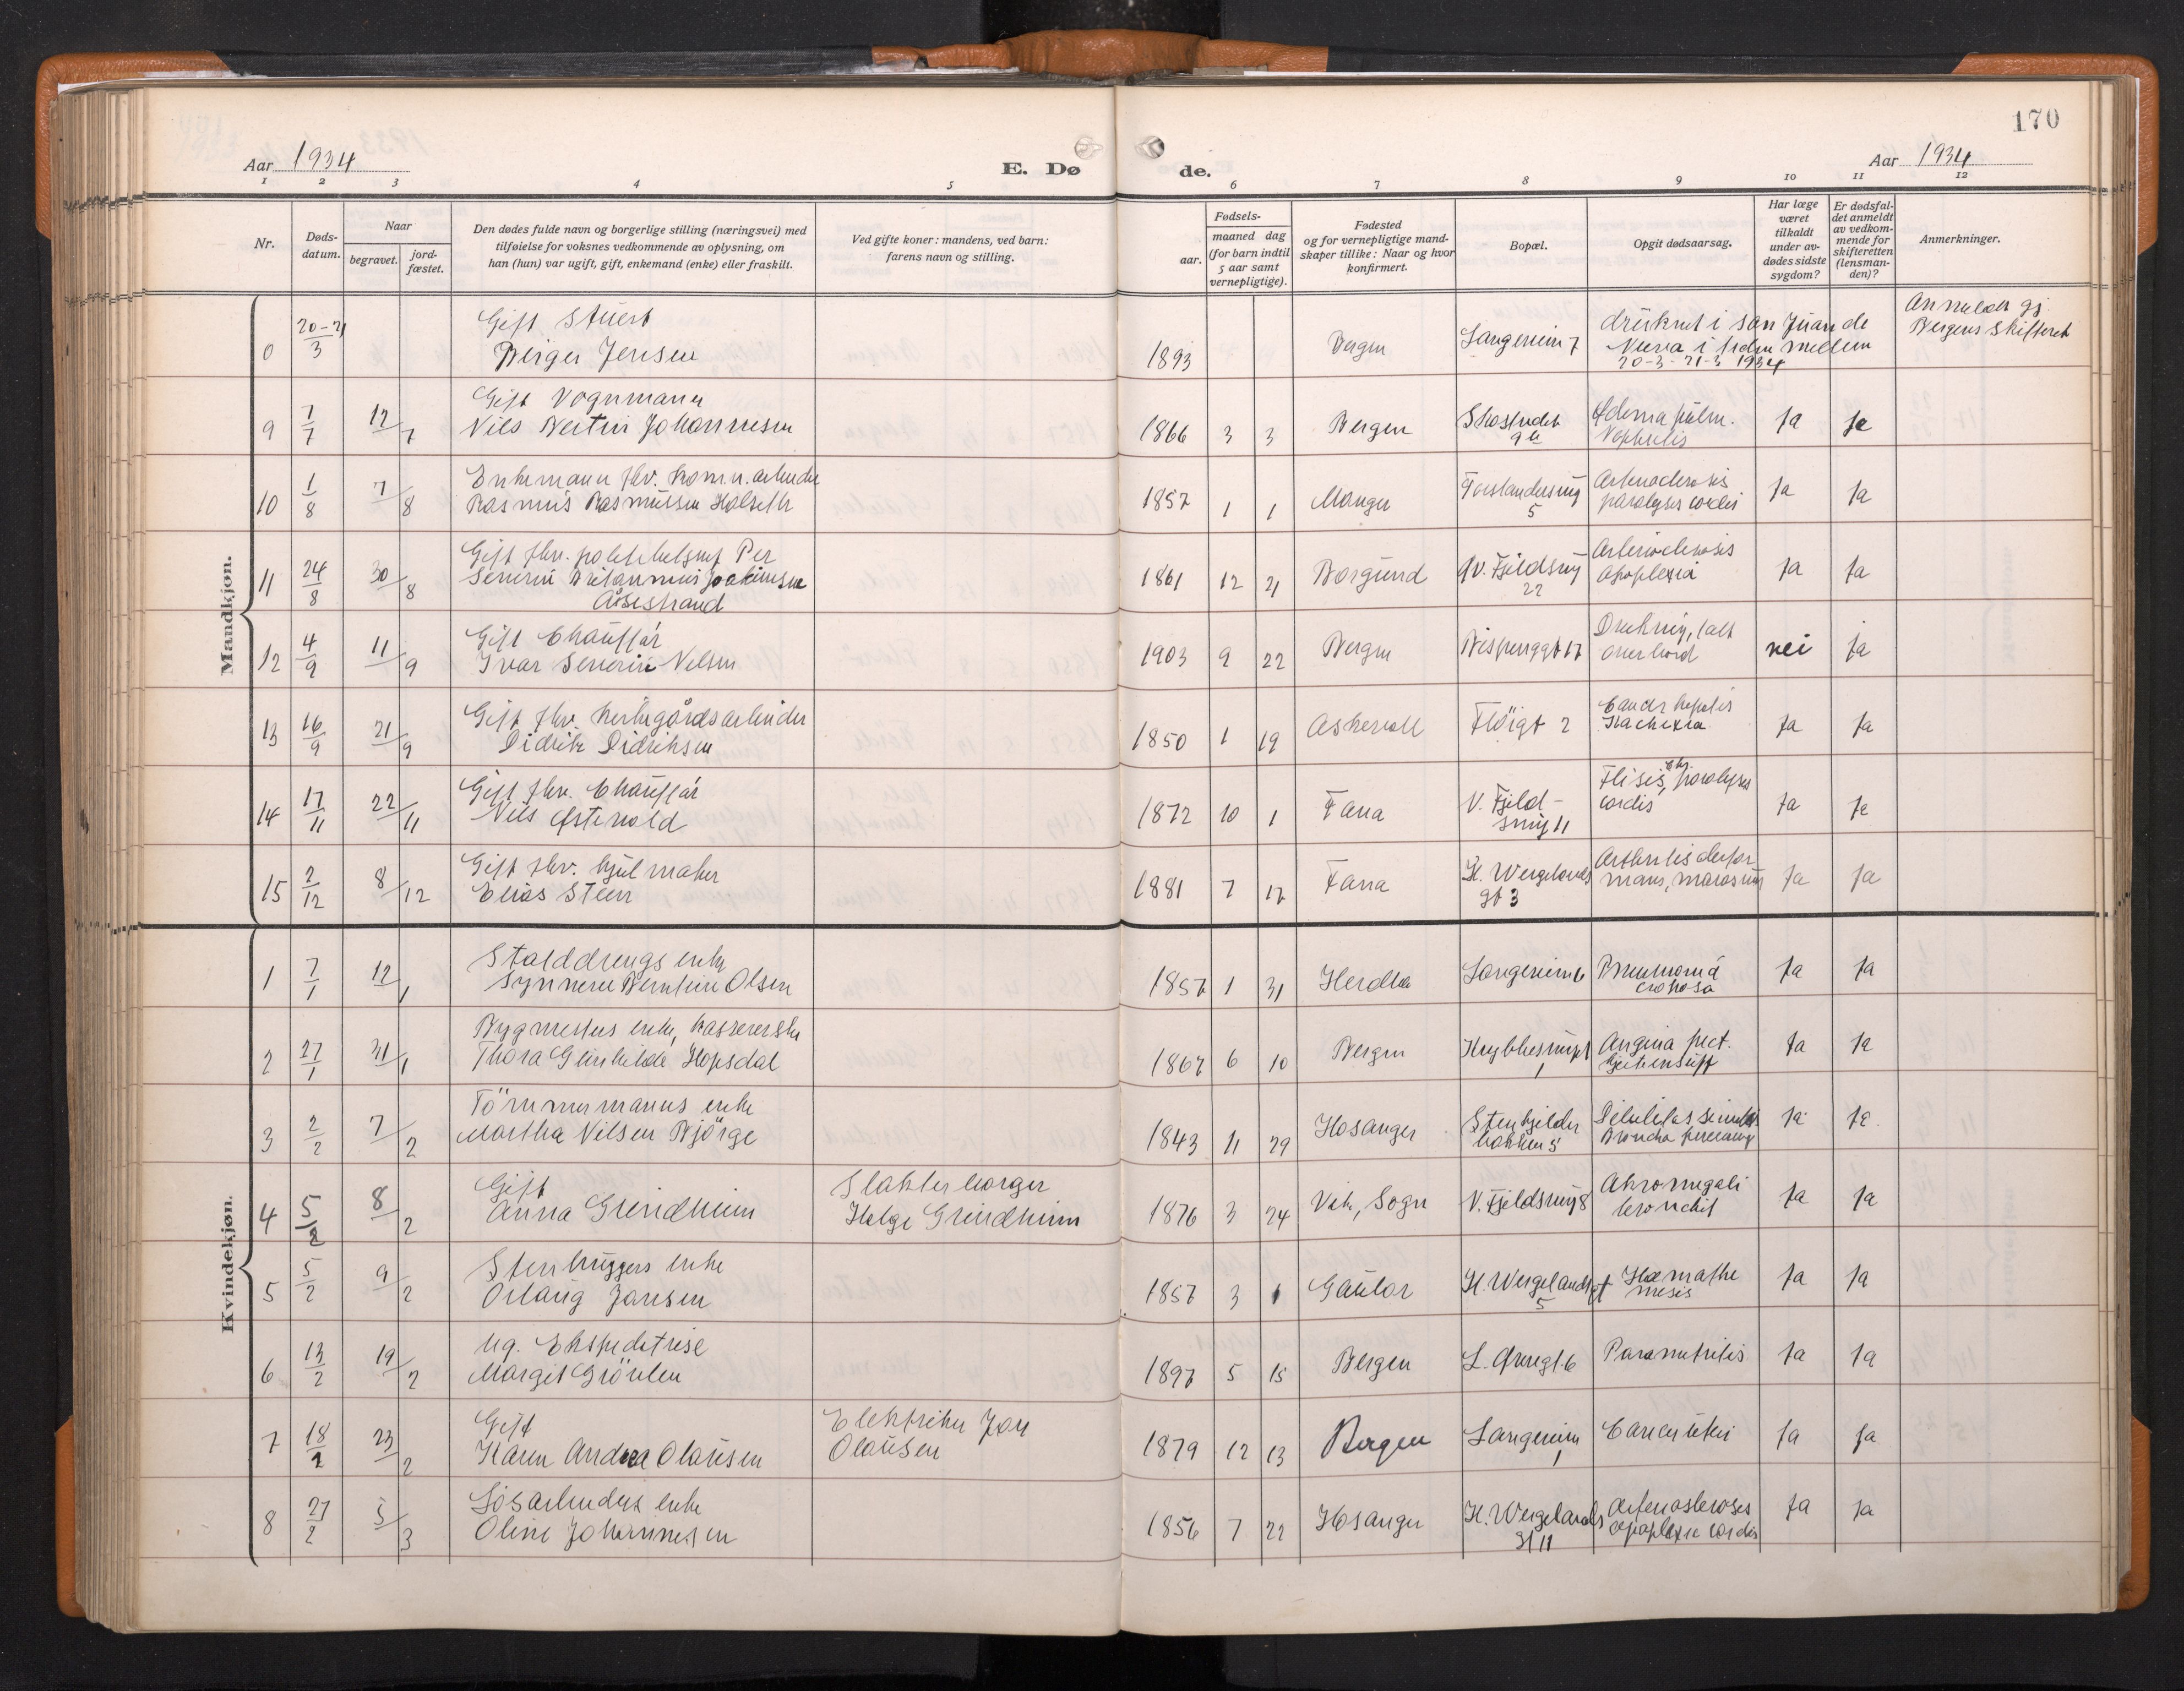 170
Aar 1934
E. Dø
de.
Aar 1934
1 2 3 4 5 6 7 8 9 10 11 12
Nr.
Døds-
datum.
Naar
begravet.
jord-
fæstet.
Den dødes fulde navn og borgerlige stilling (næringsvei) med
tilføielse for voksnes vedkommende av oplysning, om
han (hun) var ugift, gift, enkemand (enke) eller fraskilt.
Ved gifte koner: mandens, ved barn:
farens navn og stilling.
Fødsels-
aar.
maaned dag
(for barn indtil
5 aar samt
vernepligtige).
Fødested
og for vernepligtige mand-
skaper tillike: Naar og hvor
konfirmert.
Bopæl.
Opgit dødsaarsag.
Har læge
været
tilkaldt
under av-
dødes sidste
sygdom?
Er dødsfal-
det anmeldt
av vedkom-
mende for
skifteretten
(lensman-
den)?
Anmerkninger.
Mandkjøn.
0 20-21/3 Gift Stuert
Birger Jensen
1893 Bergen
druknet i San Juan de
i tiden mellem
20-3-21-3 1934
Anmeldt gj.
Bergens Skifteret
9 7/7 12/7 Gift Vognmann
Nils Johannesen
1866 3 3 Bergen
Ødema pulm.
Nephritis
Ja Ja
10 1/8 7/8 Enkemann fhv. komm. arbeider
Rasmus Rasmussen Holseth
1857 1 1 Manger
5
Ja Ja
11 24/8 30/8 Gift fhv.
Severin Joakimsen
Åsestrand
1861 12 21 Borgund
22
Apoplexia
Ja Ja
12 4/9 11/9 Gift Chauffør
Ivar Severin Nilsen
1903 9 22 Bergen
Drukning, falt
overbord
nei Ja
13 16/9 21/9 Gift fhv. kirkegårdsarbeider
Didrik Didriksen
1850 1 19 Askevold
Fløigt 2
Cancer hepatis
Kachexia
Ja Ja
14 17/11 22/11 Gift fhv. Chauffør
Nils Østevold
1872 10 1 Fana
V. Fjeld-
smug 11
Ftisis, paralyses
cordis
Ja Ja
15 2/12 8/12 Gift fhv. hjulmaker
Elias Steen
1881 7 17 Fana
H. Wergelands
gt 3
Arthritis defor
mans, marasmus
Ja Ja
Kvindekjøn.
1 7/1 12/1 Stalddrengs enke
Synneve Berntine Olsen
1857 1 31 Herdla
Pneumonia
croposa
Ja Ja
2 27/1 31/1 Bygmesters enke, kassererske
Thora Gunhilda Hopsdal
1867 6 10 Bergen
1
Angina pect.
Ja Ja
3 2/2 7/2 Tömmermanns enke
Martha Nilsen Bjørge
1843 11 29 Hosanger
Stenkjelder
bakken 5
Ja Ja
4 5/2 8/2 Gift
Anna Grindheim
Slakterborger
Helge Grindheim
1876 3 24 Vik, Sogn
V. Fjeldsmug 8
Akromegali
bronchit
Ja Ja
5 5/2 9/2 Stenhuggers enke
Orlaug Jansen
1857 3 1 Gaular
H. Wergelandsgt
5
Hæmathe
mesis
Ja Ja
6 13/2 19/2 Ug. Ekspeditrise
Margit Grönlen
1897 5 15 Bergen
L. Øvregt. 6
Parametritis
Ja Ja
7 18/2 23/2 Gift
Karen Andrea Olausen
Elektriker Jon
Olausen
1879 12 13 Bergen
1
Cancer uteri
Ja Ja
8 27/2 5/3 Løsarbeiders enke
Oline Johannessen
1856 7 22 Hosanger
H. Wergelands
gt 11
Ja Ja